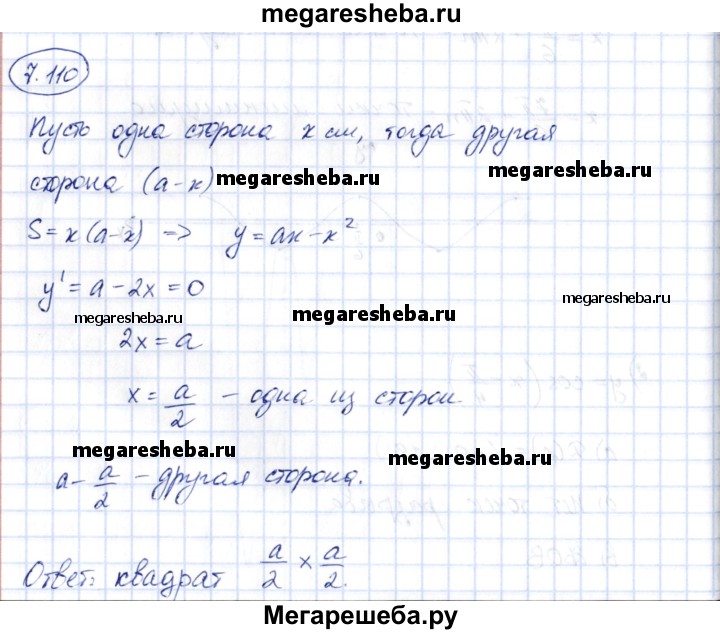 megaresheba.ru
7.110
Пусть одна сторона x см, тогда другая
сторона (a-x) megaresheba.ru
S = x(a-x) => y = ax - x²
y' = a - 2x = 0
megaresheba.ru megaresheba.ru megaresheba.ru
2x = a
x = a/2 - одна из сторон.
megaresheba.ru megaresheba.ru
a - a/2 - другая сторона.
Ответ: квадрат a/2 × a/2.
Мегарешеба.ру